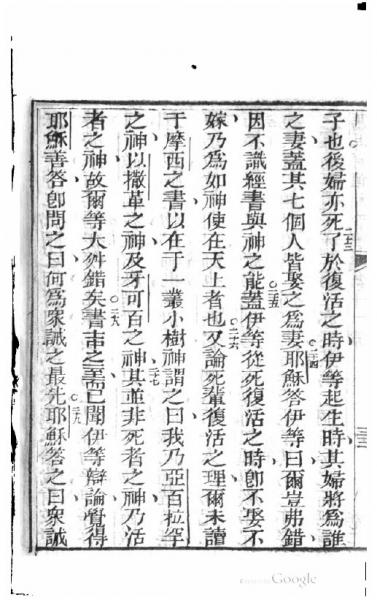 子也後婦亦死了二三於復活之時伊等起生時其婦將爲誰
之妻蓋其七個人皆娶之爲妻二四耶穌答伊等曰爾豈弗錯
因不識經書與神之能二五蓋伊等從死復活之時卽不娶不
嫁乃爲如神使在天上者也二六又論死輩復活之理爾未讀
于摩西之書以在于一叢小樹神謂之曰我乃亞百拉罕
之神以撒革之神及牙可百之神二七其並非死者之神乃活
者之神故爾等大舛錯矣二八書士之一而已聞伊等辯論覺得
耶穌善答卽問之曰何爲眾誡之最先二九耶穌答之曰眾誡
Google